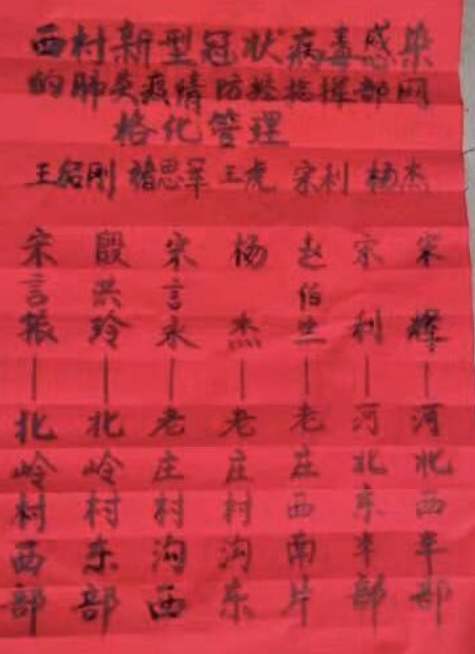 西村新型冠状病毒感染
的肺炎疫情防控指挥部网
格化管理
王启刚 褚思军 王虎 宋利 杨杰
宋辉—河北西半部
宋利—河北东半部
赵伯生—老庄西南片
杨杰—老庄村沟东
宋言永—老庄村沟西
殷洪玲—北岭村东部
宋言振—北岭村西部